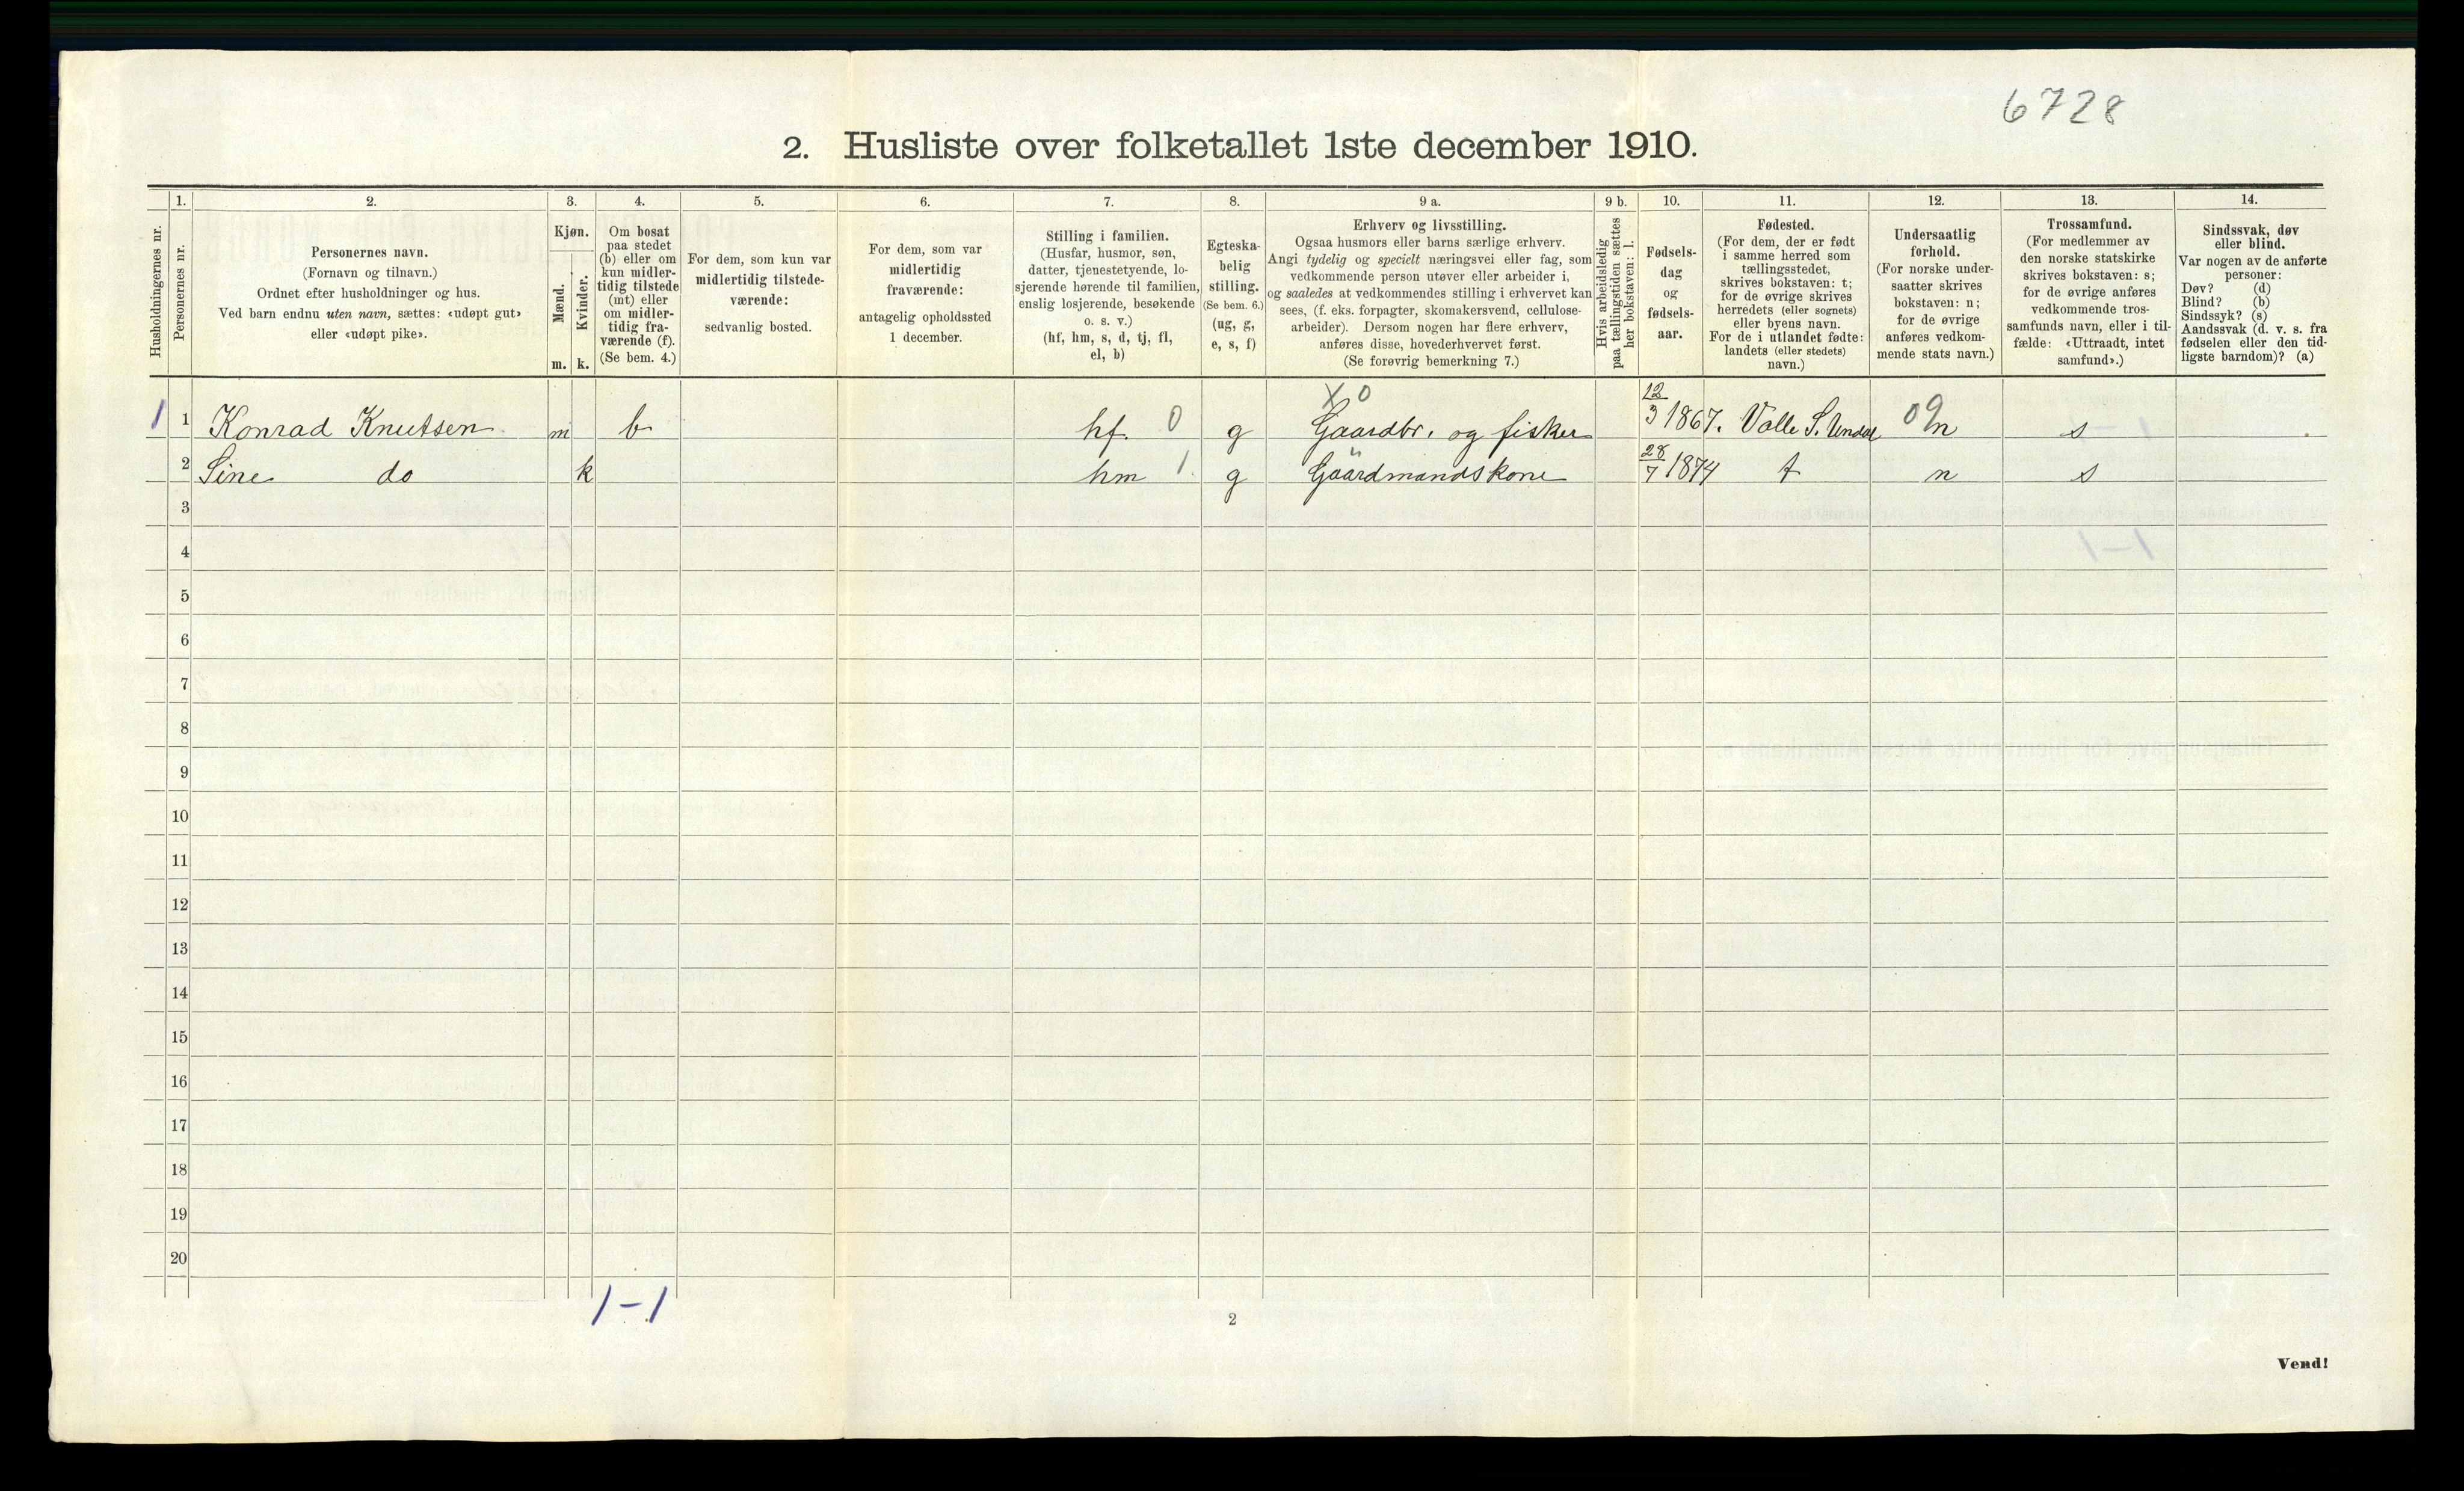 6728
2. Husliste over folketallet 1ste december 1910.
Husholdningernes nr.
1.
Personernes nr.
2.
Personernes navn.
(Fornavn og tilnavn.)
Ordnet efter husholdninger og hus.
Ved barn endnu uten navn, sættes: «udøpt gut»
eller «udøpt pike».
3.
Kjøn.
Mænd.
m.
Kvinder.
k.
4.
Om bosat
paa stedet
(b) eller om
kun midler-
tidig tilstede
(mt) eller
om midler-
tidig fra-
værende (f).
(Se bem. 4.)
5.
For dem, som kun var
midlertidig tilstede-
værende:
sedvanlig bosted.
6.
For dem, som var
midlertidig
fraværende:
antagelig opholdssted
1 december.
7.
Stilling i familien.
(Husfar, husmor, søn,
datter, tjenestetyende, lo-
sjerende hørende til familien,
enslig losjerende, besøkende
o. s. v.)
(hf, hm, s, d, tj, fl,
el, b)
8.
Egteska-
belig
stilling.
(Se bem. 6.)
(ug, g,
e, s, f)
9 a.
Erhverv og livsstilling.
Ogsaa husmors eller barns særlige erhverv.
Angi tydelig og specielt næringsvei eller fag, som
vedkommende person utøver eller arbeider i,
og saaledes at vedkommendes stilling i erhvervet kan
sees, (f. eks. forpagter, skomakersvend, cellulose-
arbeider). Dersom nogen har flere erhverv,
anføres disse, hovederhvervet først.
(Se forøvrig bemerkning 7.)
9 b.
Hvis arbeidsledig
paa tællingstiden sættes
her bokstaven: l.
10.
Fødsels-
dag
og
fødsels-
aar.
11.
Fødested.
(For dem, der er født
i samme herred som
tællingsstedet,
skrives bokstaven: t;
for de øvrige skrives
herredets (eller sognets)
eller byens navn.
For de i utlandet fødte:
landets (eller stedets)
navn.)
12.
Undersaatlig
forhold.
(For norske under-
saatter skrives
bokstaven: n;
for de øvrige
anføres vedkom-
mende stats navn.)
13.
Trossamfund.
(For medlemmer av
den norske statskirke
skrives bokstaven: s;
for de øvrige anføres
vedkommende tros-
samfunds navn, eller i til-
fælde: «Uttraadt, intet
samfund».)
14.
Sindssvak, døv
eller blind.
Var nogen av de anførte
personer:
Døv? (d)
Blind? (b)
Sindssyk? (s)
Aandssvak (d. v. s. fra
fødselen eller den tid-
ligste barndom)? (a)
X 0
1 1 Konrad Knutsen m b hf 0 g Gaardbr. og fisker 12/3 1867. Valle S. Undal 09 n s
2 Sine do k hm 1. g Gaardmandskone 28/7 1874 t n s
3
4
5
6
7
8
9
10
11
12
13
14
15
16
17
18
19
20
1-1
2
Vend!